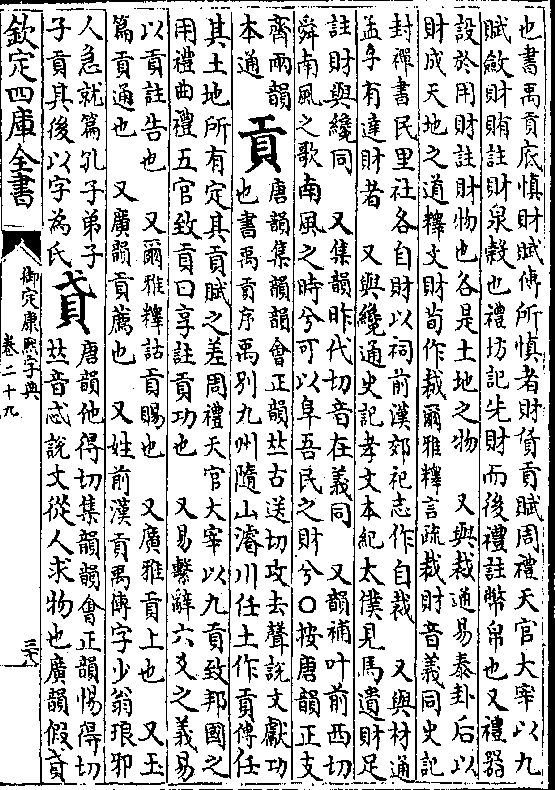 也書禹貢底慎財賦傳所慎者財貨貢賦周禮天官大宰以九
賦斂財賄註財泉穀也禮坊記先財而後禮註幣帛也又禮器
設於用財註財物也各是土地之物　又與裁通易泰卦后以
財成天地之道釋文財荀作裁爾雅釋言疏裁財音義同史記
封禪書民里社各自財以祠前漢郊祀志作自裁　又與材通
孟子有達財者　又與纔通史記孝文本紀太僕見馬遺財足
註財與纔同　又集韻昨代切音在義同　又韻補叶前西切
舜南風之歌南風之時兮可以阜吾民之財兮○按唐韻正支
齊兩韻
本通
貢
唐韻集韻韻會正韻𠀤古送切攻去聲說文獻功
也書禹貢序禹別九州隨山濬川任土作貢傳任
其土地所有定其貢賦之差周禮天官大宰以九貢致邦國之
用禮曲禮五官致貢曰享註貢功也　又易繫辭六爻之義易
以貢註告也　又爾雅釋詁貢賜也　又廣雅貢上也　又玉
篇貢通也　又廣韻貢薦也　又姓前漢貢禹傳字少翁琅邪
人急就篇孔子弟子
子貢其後以字為氏
貣
唐韻他得切集韻韻會正韻惕得切
𠀤音忒說文從人求物也廣韻假貣
欽定四庫全書
御定康熙字典
卷二十九